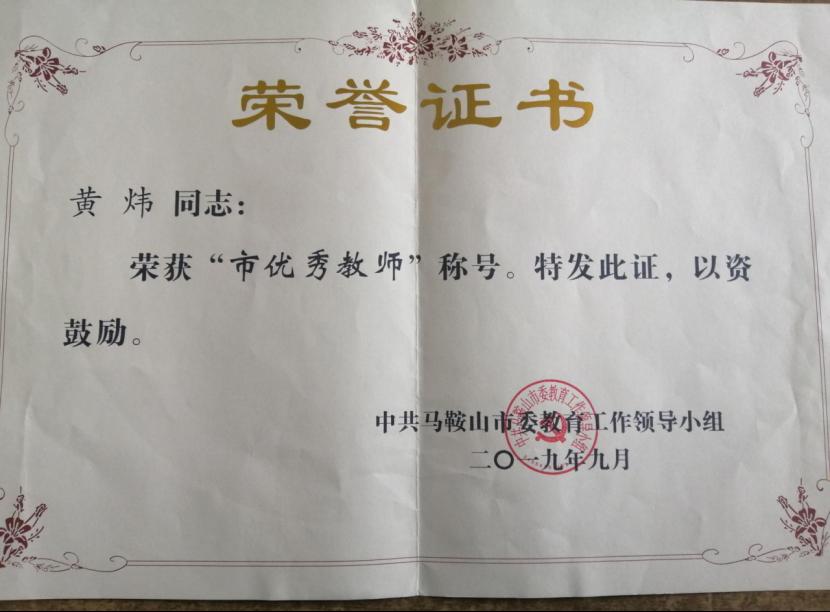 荣誉证书
黄炜同志：
荣获“市优秀教师”称号。特发此证，以资
鼓励。
中共马鞍山市委教育工作领导小组
二〇一九年九月
中共马鞍山市委教育工作领导小组